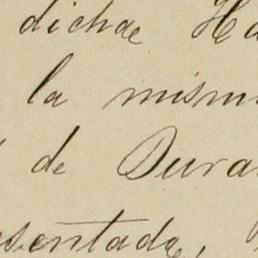 dicha Ha
la mism
de Dura
sentada,